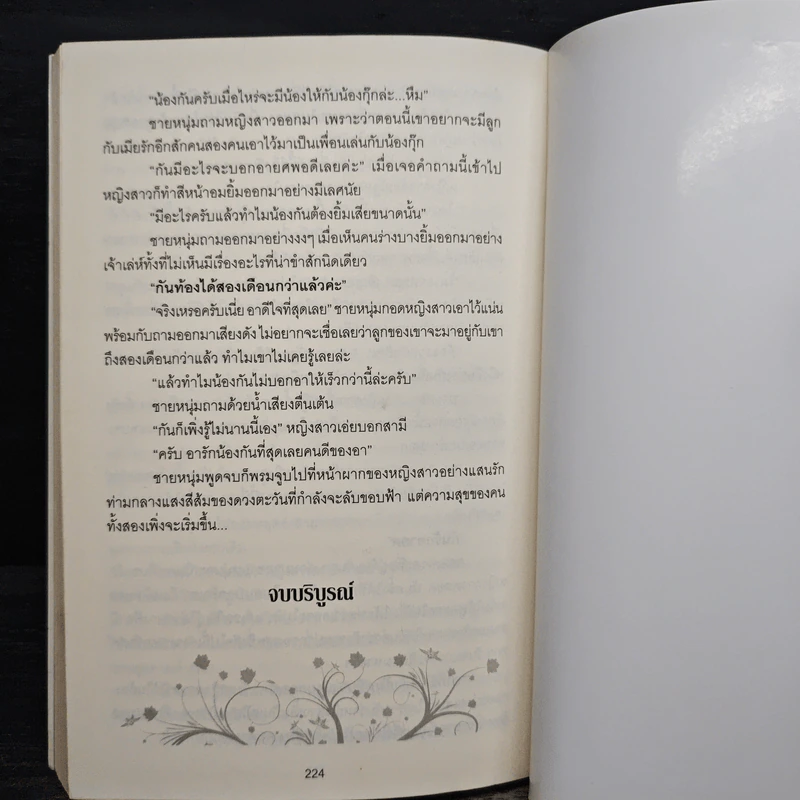 "น้องกันครับเมื่อไหร่จะมีน้องให้กับน้องกุ๊กล่ะ...หืม"
ชายหนุ่มถามหญิงสาวออกมา เพราะว่าตอนนี้เขาอยากจะมีลูก
กับเมียรักอีกสักคนสองคนเอาไว้มาเป็นเพื่อนเล่นกับน้องกุ๊ก
"กันมีอะไรจะบอกอายศพอดีเลยค่ะ" เมื่อเจอคำถามนี้เข้าไป
หญิงสาวก็ทำสีหน้าอมยิ้มออกมาอย่างมีเลศนัย
"มีอะไรครับแล้วทำไมน้องกันต้องยิ้มเสียขนาดนั้น"
ชายหนุ่มถามออกมาอย่างงงๆ เมื่อเห็นคนร่างบางยิ้มออกมาอย่าง
เจ้าเล่ห์ทั้งที่ไม่เห็นมีเรื่องอะไรที่น่าขำสักนิดเดียว
"กันท้องได้สองเดือนกว่าแล้วค่ะ"
"จริงเหรอครับเนี่ย อาดีใจที่สุดเลย" ชายหนุ่มกอดหญิงสาวเอาไว้แน่น
พร้อมกับถามออกมาเสียงดัง ไม่อยากจะเชื่อเลยว่าลูกของเขาจะมาอยู่กับเขา
ถึงสองเดือนกว่าแล้ว ทำไมเขาไม่เคยรู้เลยล่ะ
"แล้วทำไมน้องกันไม่บอกอาให้เร็วกว่านี้ล่ะครับ"
ชายหนุ่มถามด้วยน้ำเสียงตื่นเต้น
"กันก็เพิ่งรู้ไม่นานนี้เอง" หญิงสาวเอ่ยบอกสามี
"ครับ อารักน้องกันที่สุดเลยคนดีของอา"
ชายหนุ่มพูดจบก็พรมจูบไปที่หน้าผากของหญิงสาวอย่างแสนรัก
ท่ามกลางแสงสีส้มของดวงตะวันที่กำลังจะลับขอบฟ้า แต่ความสุขของคน
ทั้งสองเพิ่งจะเริ่มขึ้น...
จบบริบูรณ์
224